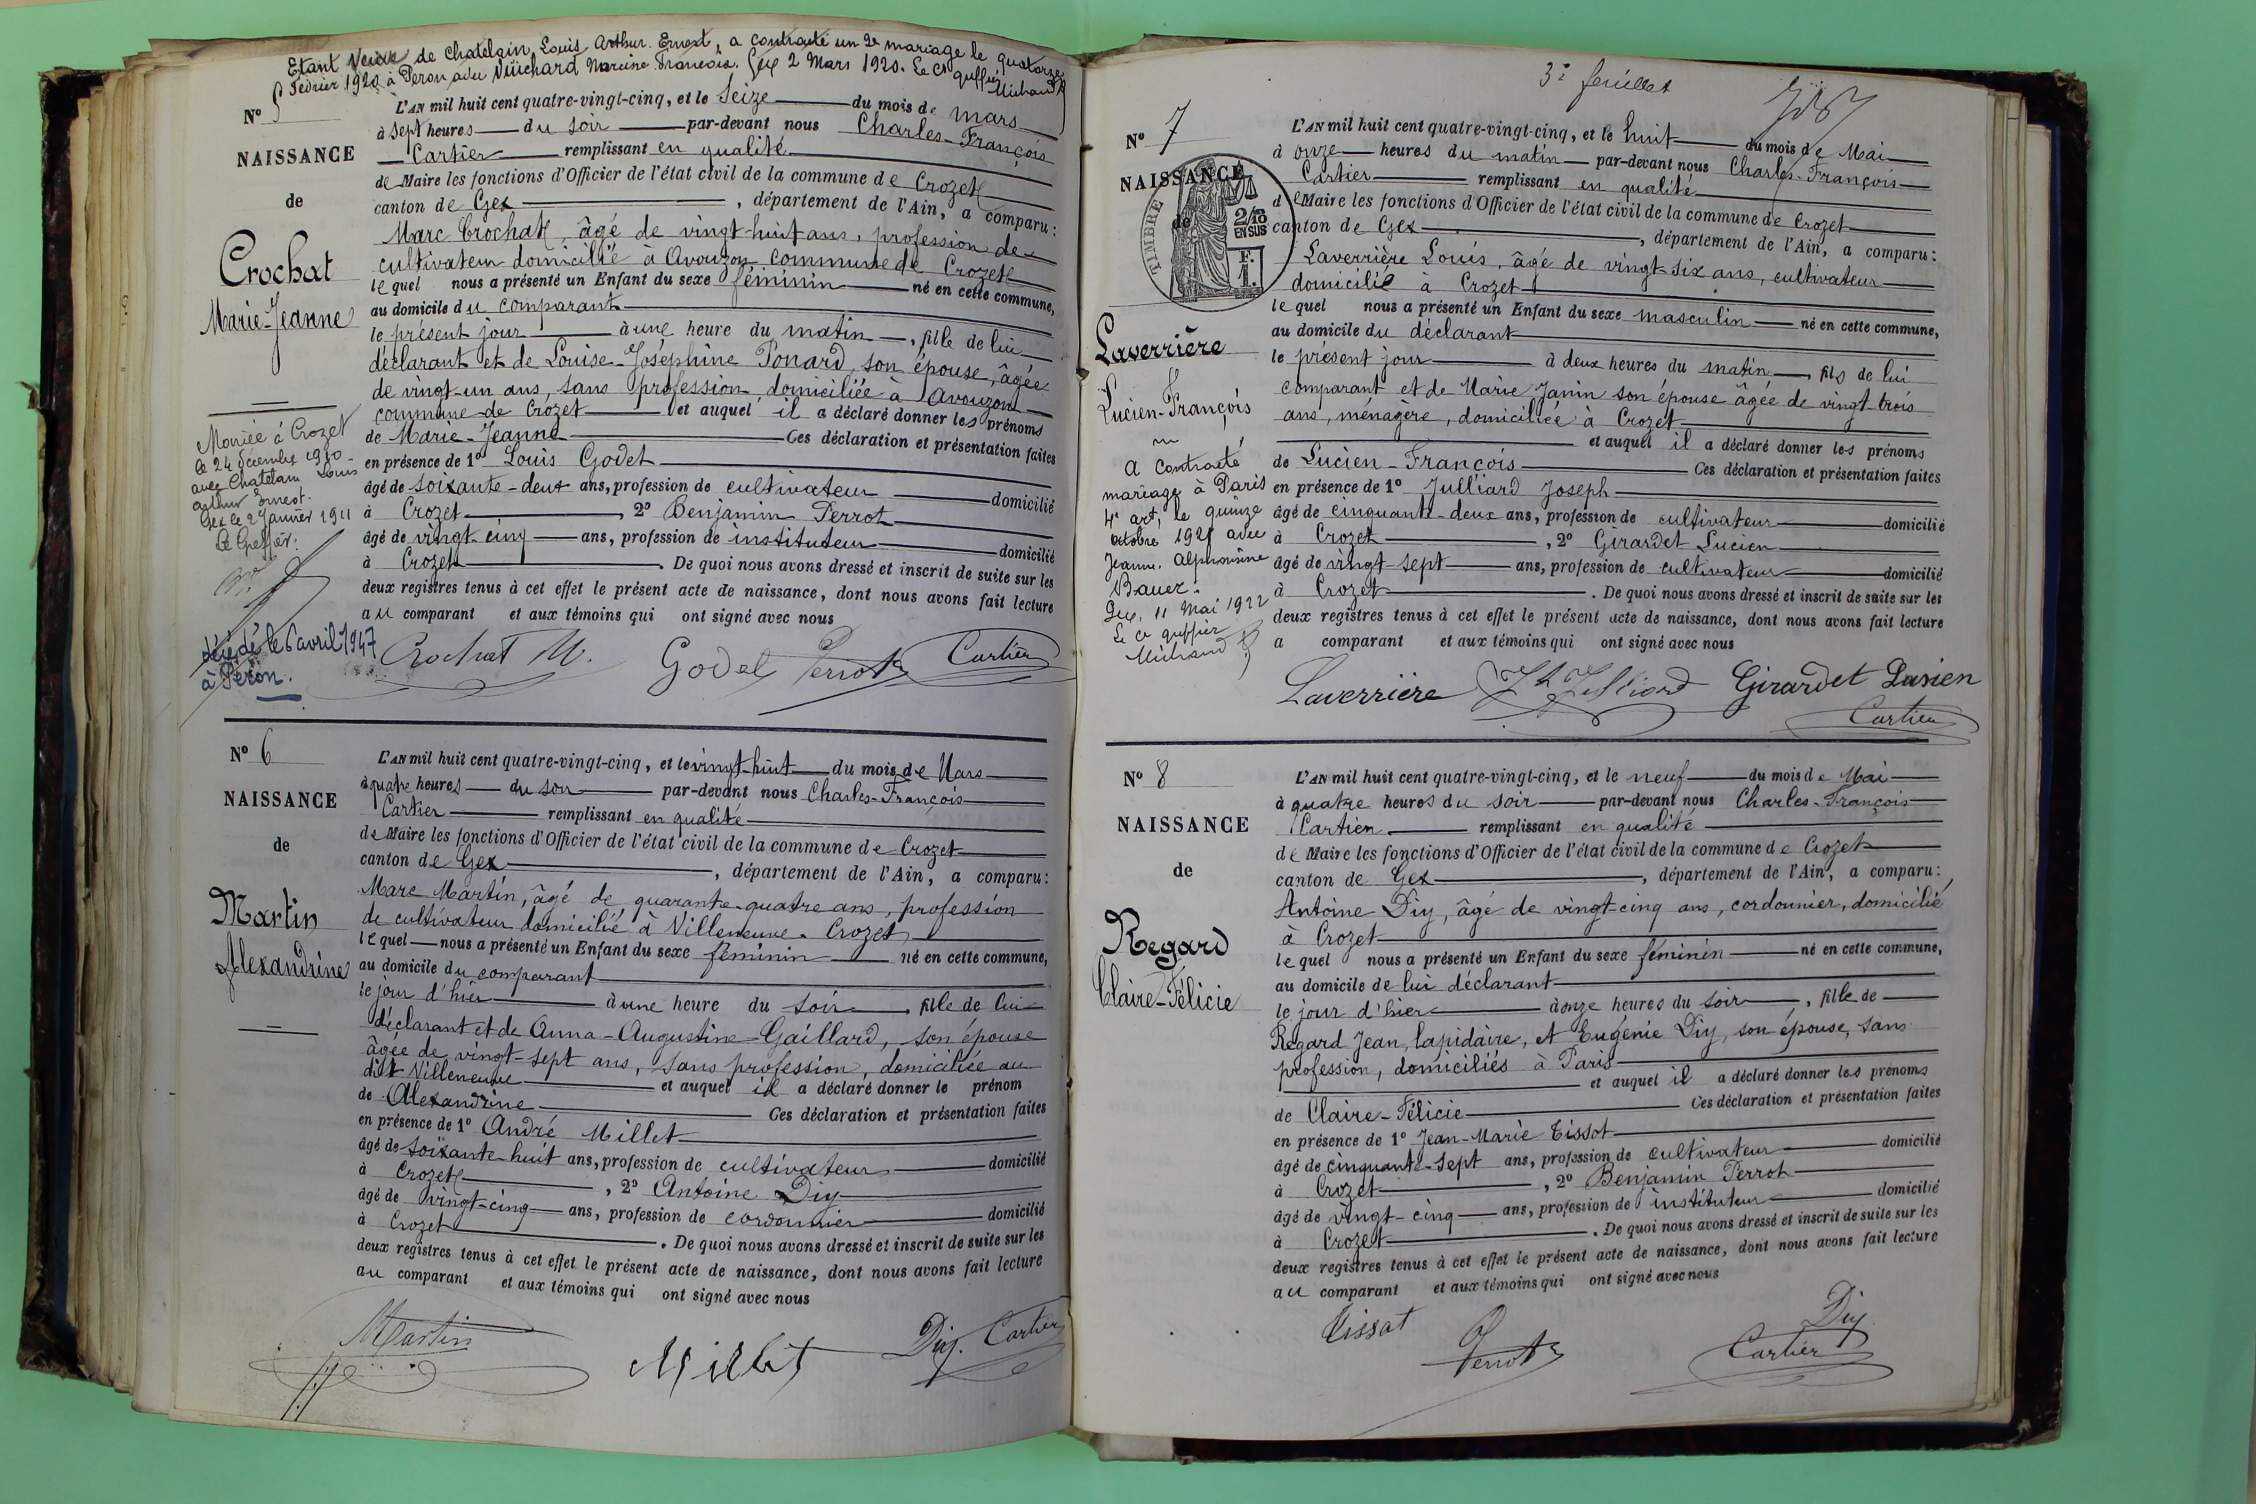 Etant Veuve de Chatelain, Louis Arthur Ernest, a contracté un 2e mariage le quatorze
Février 1920 à Peron avec Vuichard Francois. Gex 2 Mars 1920. Le Cs greffier
Michaud
N° 5
NAISSANCE
de
Crochat
Marie-Jeanne
Mariée à Crozet
le 24 décembre 1910
avec Chatelain Louis
arthur Ernest.
Gex le 2 Janvier 1911
Le Greffier:
décédé le 6 avril 1947
à Péron.
L'AN mil huit cent quatre-vingt-cinq, et le Seize du mois de mars
à sept heures du soir par-devant nous Charles-François
Cartier remplissant en qualité
de Maire les fonctions d'Officier de l'état civil de la commune de Crozet
canton de Gex, département de l'Ain, a comparu:
Marc Crochat, âgé de vingt-huit ans, profession de
cultivateur domicilié à Avouzon commune de Crozet
lequel nous a présenté un Enfant du sexe féminin né en cette commune,
au domicile du comparant
le présent jour à une heure du matin, fille de lui
déclarant et de Louise-Joséphine Ponard, son épouse, âgée
de vingt-un ans, sans profession, domiciliée à Avouzon
commune de Crozet et auquel il a déclaré donner les prénoms
de Marie-Jeanne Ces déclaration et présentation faites
en présence de 1° Louis Godet
âgé de soixante-deux ans, profession de cultivateur domicilié
à Crozet, 2° Benjamin Perrot
âgé de vingt cinq ans, profession de instituteur domicilié
à Crozet. De quoi nous avons dressé et inscrit de suite sur les
deux registres tenus à cet effet le présent acte de naissance, dont nous avons fait lecture
au comparant et aux témoins qui ont signé avec nous
Crochat M. Godet Perrot Cartier
N° 6
NAISSANCE
de
Martin
Alexandrine
L'AN mil huit cent quatre-vingt-cinq, et le vingt-huit du mois de Mars
à quatre heures du soir par-devant nous Charles-François
Cartier remplissant en qualité
de Maire les fonctions d'Officier de l'état civil de la commune de Crozet
canton de Gex, département de l'Ain, a comparu:
Marc Martin, âgé de quarante-quatre ans, profession
de cultivateur domicilié à Villeneuve. Crozet
lequel nous a présenté un Enfant du sexe féminin né en cette commune,
au domicile du comparant
le jour d'hier à une heure du soir, fille de lui
déclarant et de Anna-Augustine Gaillard, son épouse
âgée de vingt-sept ans, sans profession, domiciliée au
dit Villeneuve et auquel il a déclaré donner le prénom
de Alexandrine Ces déclaration et présentation faites
en présence de 1° André Millet
âgé de soixante-huit ans, profession de cultivateur domicilié
à Crozet, 2° Antoine Diy
âgé de vingt-cinq ans, profession de cordonnier domicilié
à Crozet. De quoi nous avons dressé et inscrit de suite sur les
deux registres tenus à cet effet le présent acte de naissance, dont nous avons fait lecture
au comparant et aux témoins qui ont signé avec nous
Martin Millet Diy. Cartier
3e feuillet
N° 7
NAISSANCE
de
TIMBRE
2/10 EN SUS
F. 1.
Laverrière
Lucien-François
a contracté
mariage à Paris
4e art, le quinze
octobre 1921 avec
Jeanne Alphonsine
Bauer.
Gex, 11 Mai 1922
Le Cs greffier
Michaud
L'AN mil huit cent quatre-vingt-cinq, et le huit du mois de Mai
à onze heures du matin par-devant nous Charles-François
Cartier remplissant en qualité
de Maire les fonctions d'Officier de l'état civil de la commune de Crozet
canton de Gex, département de l'Ain, a comparu:
Laverrière Louis, âgé de vingt six ans, cultivateur
domicilié à Crozet
lequel nous a présenté un Enfant du sexe masculin né en cette commune,
au domicile du déclarant
le présent jour à deux heures du matin, fils de lui
comparant et de Marie Janin son épouse âgée de vingt-trois
ans, ménagère, domiciliée à Crozet
et auquel il a déclaré donner les prénoms
de Lucien-François Ces déclaration et présentation faites
en présence de 1° Julliard Joseph
âgé de cinquante-deux ans, profession de cultivateur domicilié
à Crozet, 2° Girardet Lucien
âgé de vingt-sept ans, profession de cultivateur domicilié
à Crozet. De quoi nous avons dressé et inscrit de suite sur les
deux registres tenus à cet effet le présent acte de naissance, dont nous avons fait lecture
a comparant et aux témoins qui ont signé avec nous
Laverrière Julliard Girardet Lusien
Cartier
N° 8
NAISSANCE
de
Regard
Claire-Félicie
L'AN mil huit cent quatre-vingt-cinq, et le neuf du mois de Mai
à quatre heures du soir par-devant nous Charles-François
Cartier remplissant en qualité
de Maire les fonctions d'Officier de l'état civil de la commune de Crozet
canton de Gex, département de l'Ain, a comparu:
Antoine Diy, âgé de vingt-cinq ans, cordonnier, domicilié
à Crozet
lequel nous a présenté un Enfant du sexe féminin né en cette commune,
au domicile de lui déclarant
le jour d'hier à onze heures du soir, fille de
Regard Jean, lapidaire, et Eugénie Diy, son épouse, sans
profession, domiciliés à Paris
et auquel il a déclaré donner les prénoms
de Claire-Félicie Ces déclaration et présentation faites
en présence de 1° Jean-Marie Tissot
âgé de cinquante-sept ans, profession de cultivateur domicilié
à Crozet, 2° Benjamin Perrot
âgé de vingt-cinq ans, profession de instituteur domicilié
à Crozet. De quoi nous avons dressé et inscrit de suite sur les
deux registres tenus à cet effet le présent acte de naissance, dont nous avons fait lecture
au comparant et aux témoins qui ont signé avec nous
Tissot Perrot Diy
Cartier